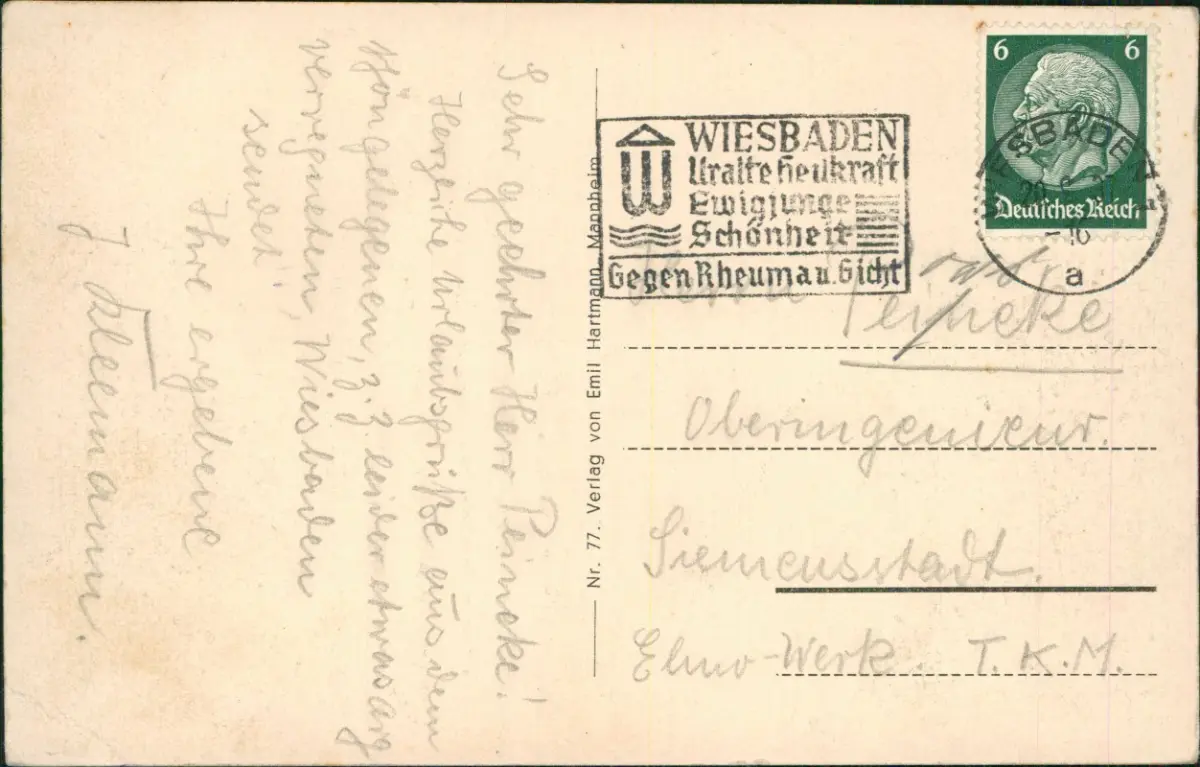 Sehr geehrter Herr Peincke!
Herzliche Urlaubsgrüße aus dem
schön gelegenen, z. Z. leider etwas arg
verregneten, Wiesbaden
sendet
Ihre ergebene
J. Kleemann.
Nr. 77. Verlag von Emil Hartmann, Mannheim
WIESBADEN
Uralte Heilkraft
Ewigjunge
Schönheit
Gegen Rheuma u. Gicht
6 6
Deutsches Reich
WIESBADEN
a
Herrn Peincke
Oberingenieur.
Siemensstadt.
Elmo-Werk. T.K.M.